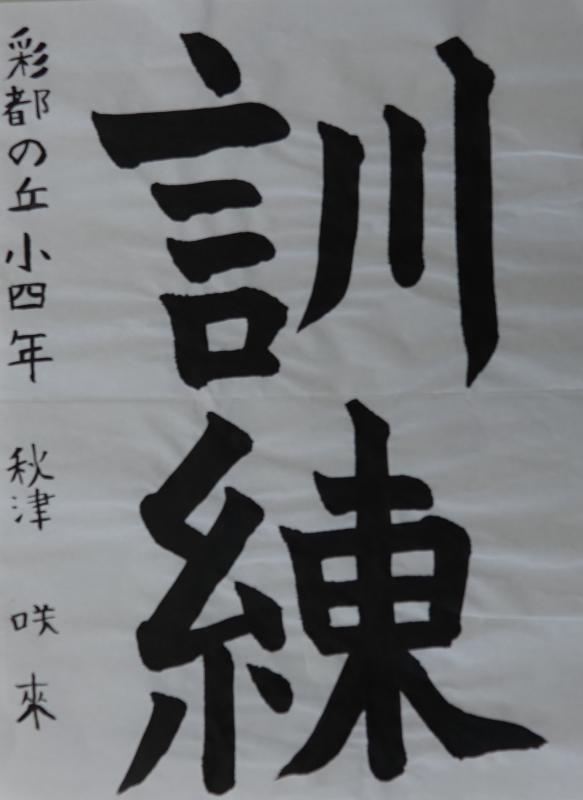 訓練
彩都の丘小四年 秋津 咲來